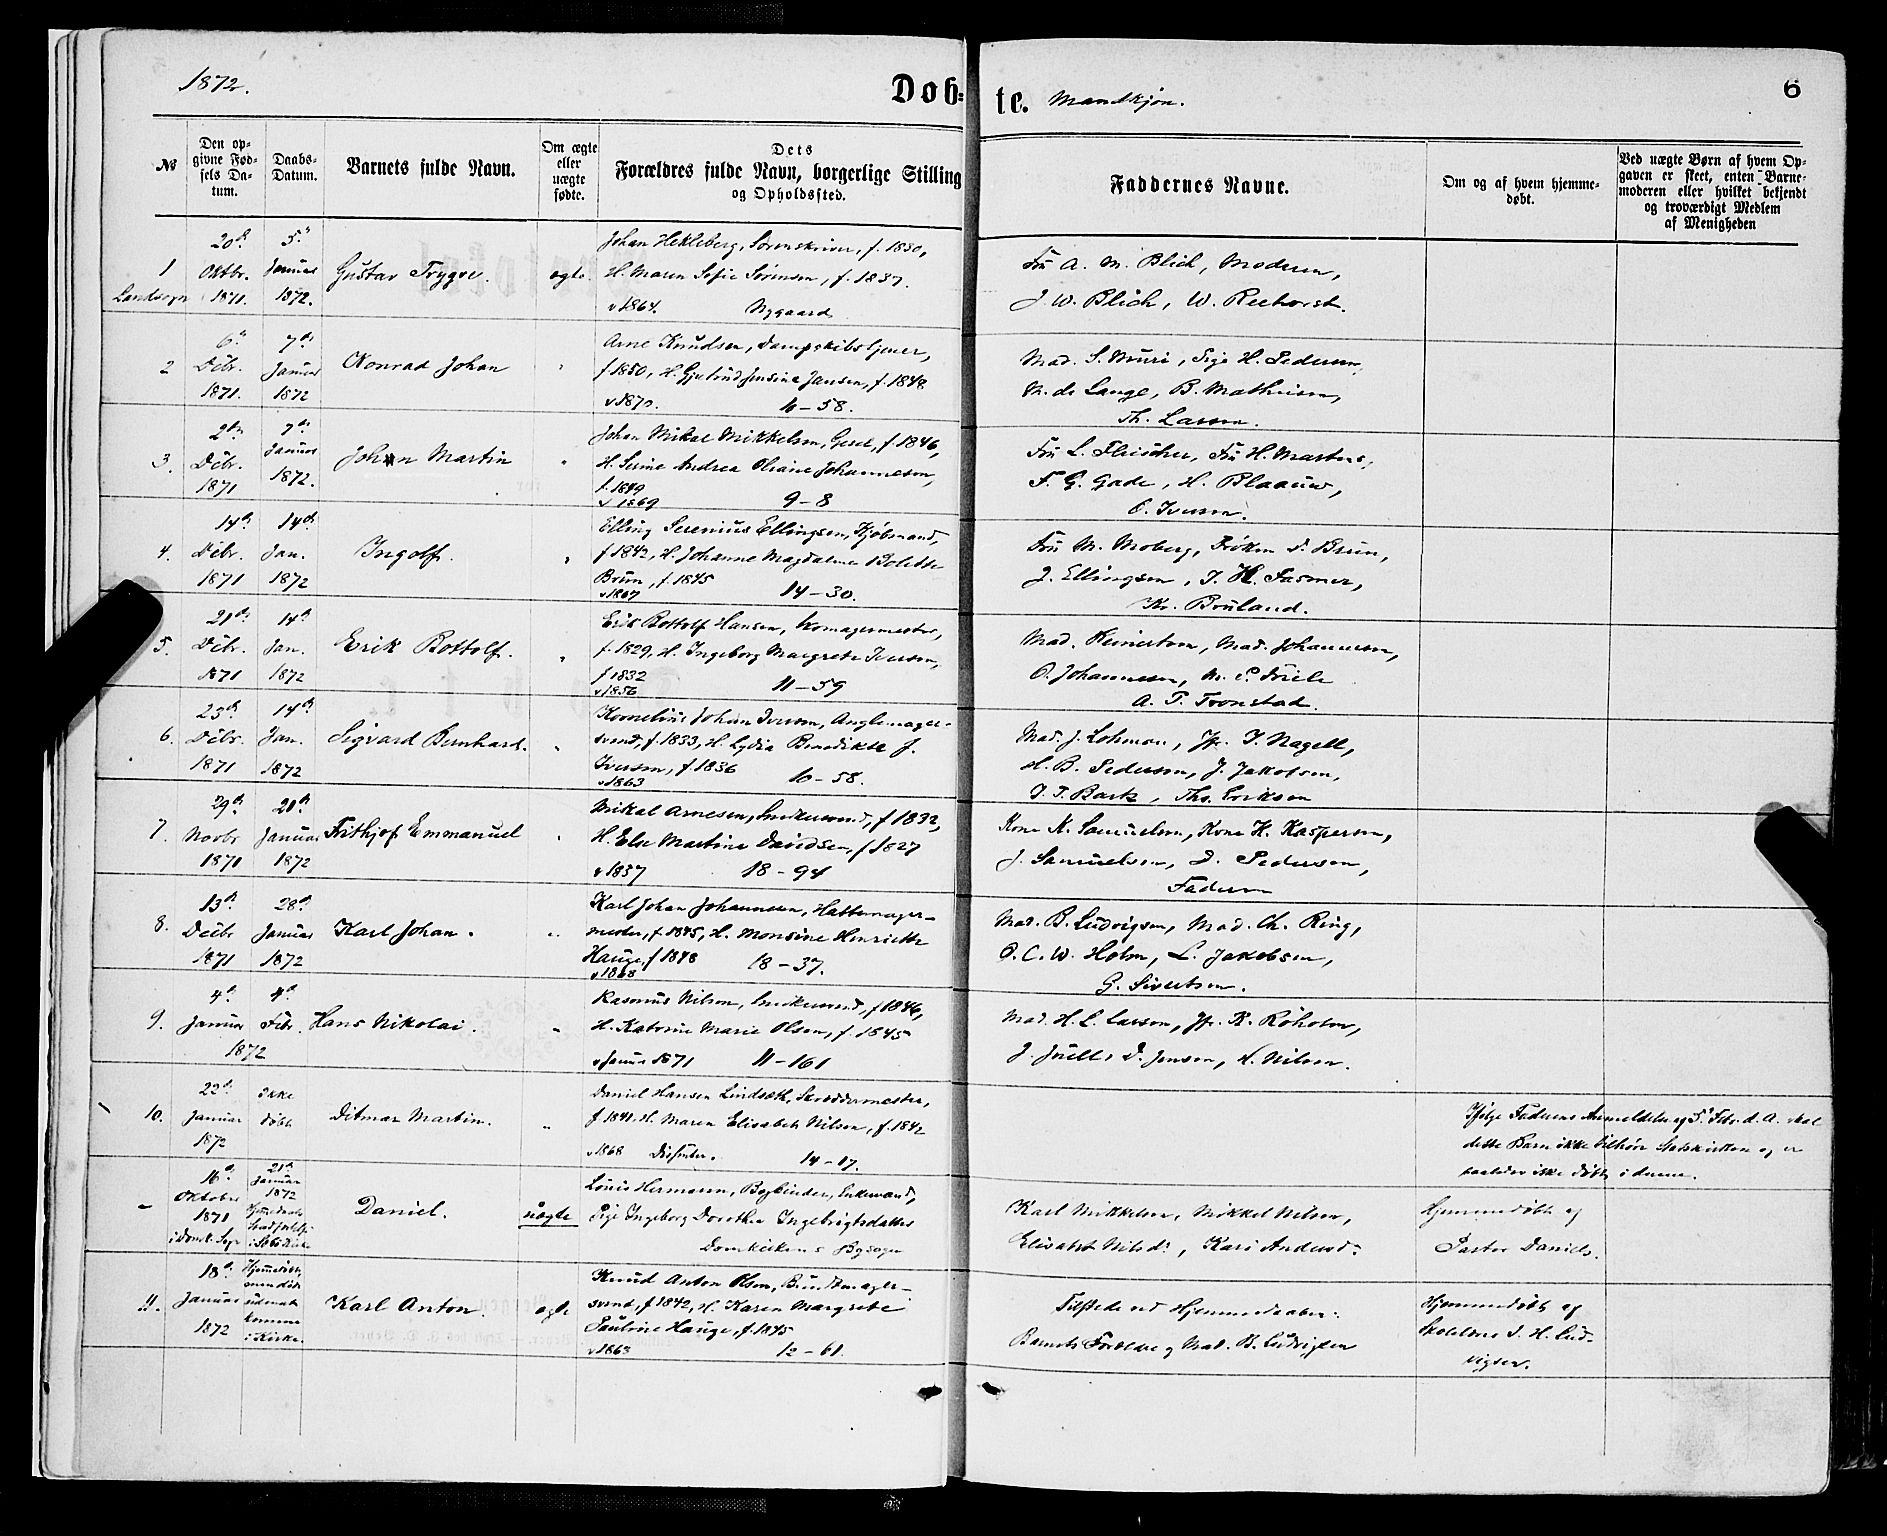 1872.
Døb=
te. Mandkjøn.
6
№
Den op-
givne Fød-
sels Da-
tum.
Daabs-
Datum.
Barnets fulde Navn.
Om ægte
eller
uægte
fødte.
Dets
Forældres fulde Navn, borgerlige Stilling
og Opholdssted.
Faddernes Navne.
Om og af hvem hjemme-
døbt.
Ved uægte Børn af hvem Op-
gaven er skeet, enten Barne-
moderen eller hvilket bekjendt
og troværdigt Medlem
af Menigheden
1
Landsogn
20d
Oktbr.
1871.
5.
Januar
1872.
Gustav Trygve.
ægte.
Johan Hekleberg, Sorenskriver, f. 1830,
H. Maren Sofie Sørensen, f. 1837.
v 1864. Nygaard
Fru A. M. Blich, Moderen,
J. W. Blich, W. Reehorst.
2
6
Debr.
1871.
7de
Januar
1872
Konrad Johan
"
Arne Knudsen, Dampskibstjener,
f 1850, H. Gjertrud Jensine Jansen, f. 1848
v 1870. 10-58.
Mad. S. Muri, Pige H. Pedersen,
M. de Lange, B. Mathisen,
Th. Larsen.
3.
2den
Debr.
1871
7de
Januar
1872.
Johan Martin
"
Johan Mikal Mikkelsen, Gesel, f. 1846,
H. Serine Andrea Oliane Johannesen,
f. 1849
v 1869 9-8
Fru L. Fleischer, Fru H. Martens,
F. G. Gade, H. Blaauw,
C. Iversen.
4.
14de
Debr.
1871
14de
Jan.
1872
Ingolf.
"
Elling Serenius Ellingsen, Kjøbmand,
f 1842, H. Johanne Magdalene Bolette
Brun, f. 1845
v 1867 14-30.
Fru M. Moberg, Frøken D. Brun,
J. Ellingsen, T. H. Fasmer,
Kr. Bruland.
5.
21de
Debr.
1871
14d
Jan.
1872
Erik Bottolf.
"
Erik Bottolf Hansen, Komagermester,
f. 1829, H. Ingeborg Margrete Iversen,
f 1832
v 1856 11-59
Mad. Johannesen,
O. Johannesen, M. S. Friele
A. T. Tronstad.
6.
23d
Debr.
1871
14de
Jan.
1872
Sigvard Bernhard.
"
Kornelius Johan Iversen, Anglemager-
svend, f. 1833, H. Lydia Benedikte J.
Iversen, f. 1836
v 1863 10-58.
Mad. J. Lohman, Jfr. I. Nagell,
H. B. Pedersen, J. Jakobsen,
Ths. Eriksen
7.
29d
Novbr
1871
21d
Januar
1872
Frithjof Emmanuel
"
Mikal Arnesen, Snekkersvend, f 1832,
H. Else Martine Davidsen, f 1827
v 1857 18-94
Kone K. Samuelsen, Kone H. Kaspersen,
J. Samuelsen, D. Pedersen,
Faderen
8.
13d
Debr
1871
28d
Januar
1872
Karl Johan.
"
Karl Johan Johannesen, Hattemager-
mester, f. 1845, H. Monsine Henriette
Hauge, f 1848
v 1868 18-37.
Mad. B. Ludvigsen, Mad. Ch. Ring,
O. C. W. Holm, L. Jakobsen,
G. Sivertsen.
9.
4d
Januar
4d
Febr.
1872
Hans Nikolai.
"
Rasmus Nilsen, Snekkersvend, f 1846,
H. Katrine Marie Olsen, f. 1845
v Januar 1871 11-161
Mad. H. L. Larsen, Jfr. K. Røholm,
J. Juell, D. Jensen, N. Nilsen.
10.
22d
Januar
1872
Ikke
døbt
Ditmar Martin.
"
Daniel Hansen Lindsøth, Skræddermester,
f 1841. H. Maren Elisabeth Nilsen, f. 1842
v 1868 Dissenter. 14-17.
Ifølge Faderens Anmeldelse af 5 Febr. d. A. skal
dette Barn ikke tilhøre Statskirken og er
saaledes ikke døbt i denne.
-
16d
Oktober
1871
i Domk. Sogn
21d
Januar
1872
Daniel.
uægte
Louis Hermann, Bogbinder, Enkemand,
Pige Ingeborg Dorothea Ingebrigtsdatter
Domkirkens Bysogn
Karl Mikkelsen, Mikkel Nilsen,
Elisabet Nilsd:, Kari Andersd:
Hjemmedøbt af
Pastor Daniels.
11.
18d
Januar
1872
Hjemmedøbt,
men døde
uden at
komme
i Kirke.
Karl Anton.
ægte
Knud Anton Olsen, Bundtmager-
svend, f 1842, H. Karen Margrete
Pauline Hauge, f. 1845
v 1863 12-61.
Tilstede ved Hjemmedaaben:
Barnets Forældre og Mad. B. Ludvigsen
Hjemmedøbt af
Skolelærer I. H. Lud-
vigsen.